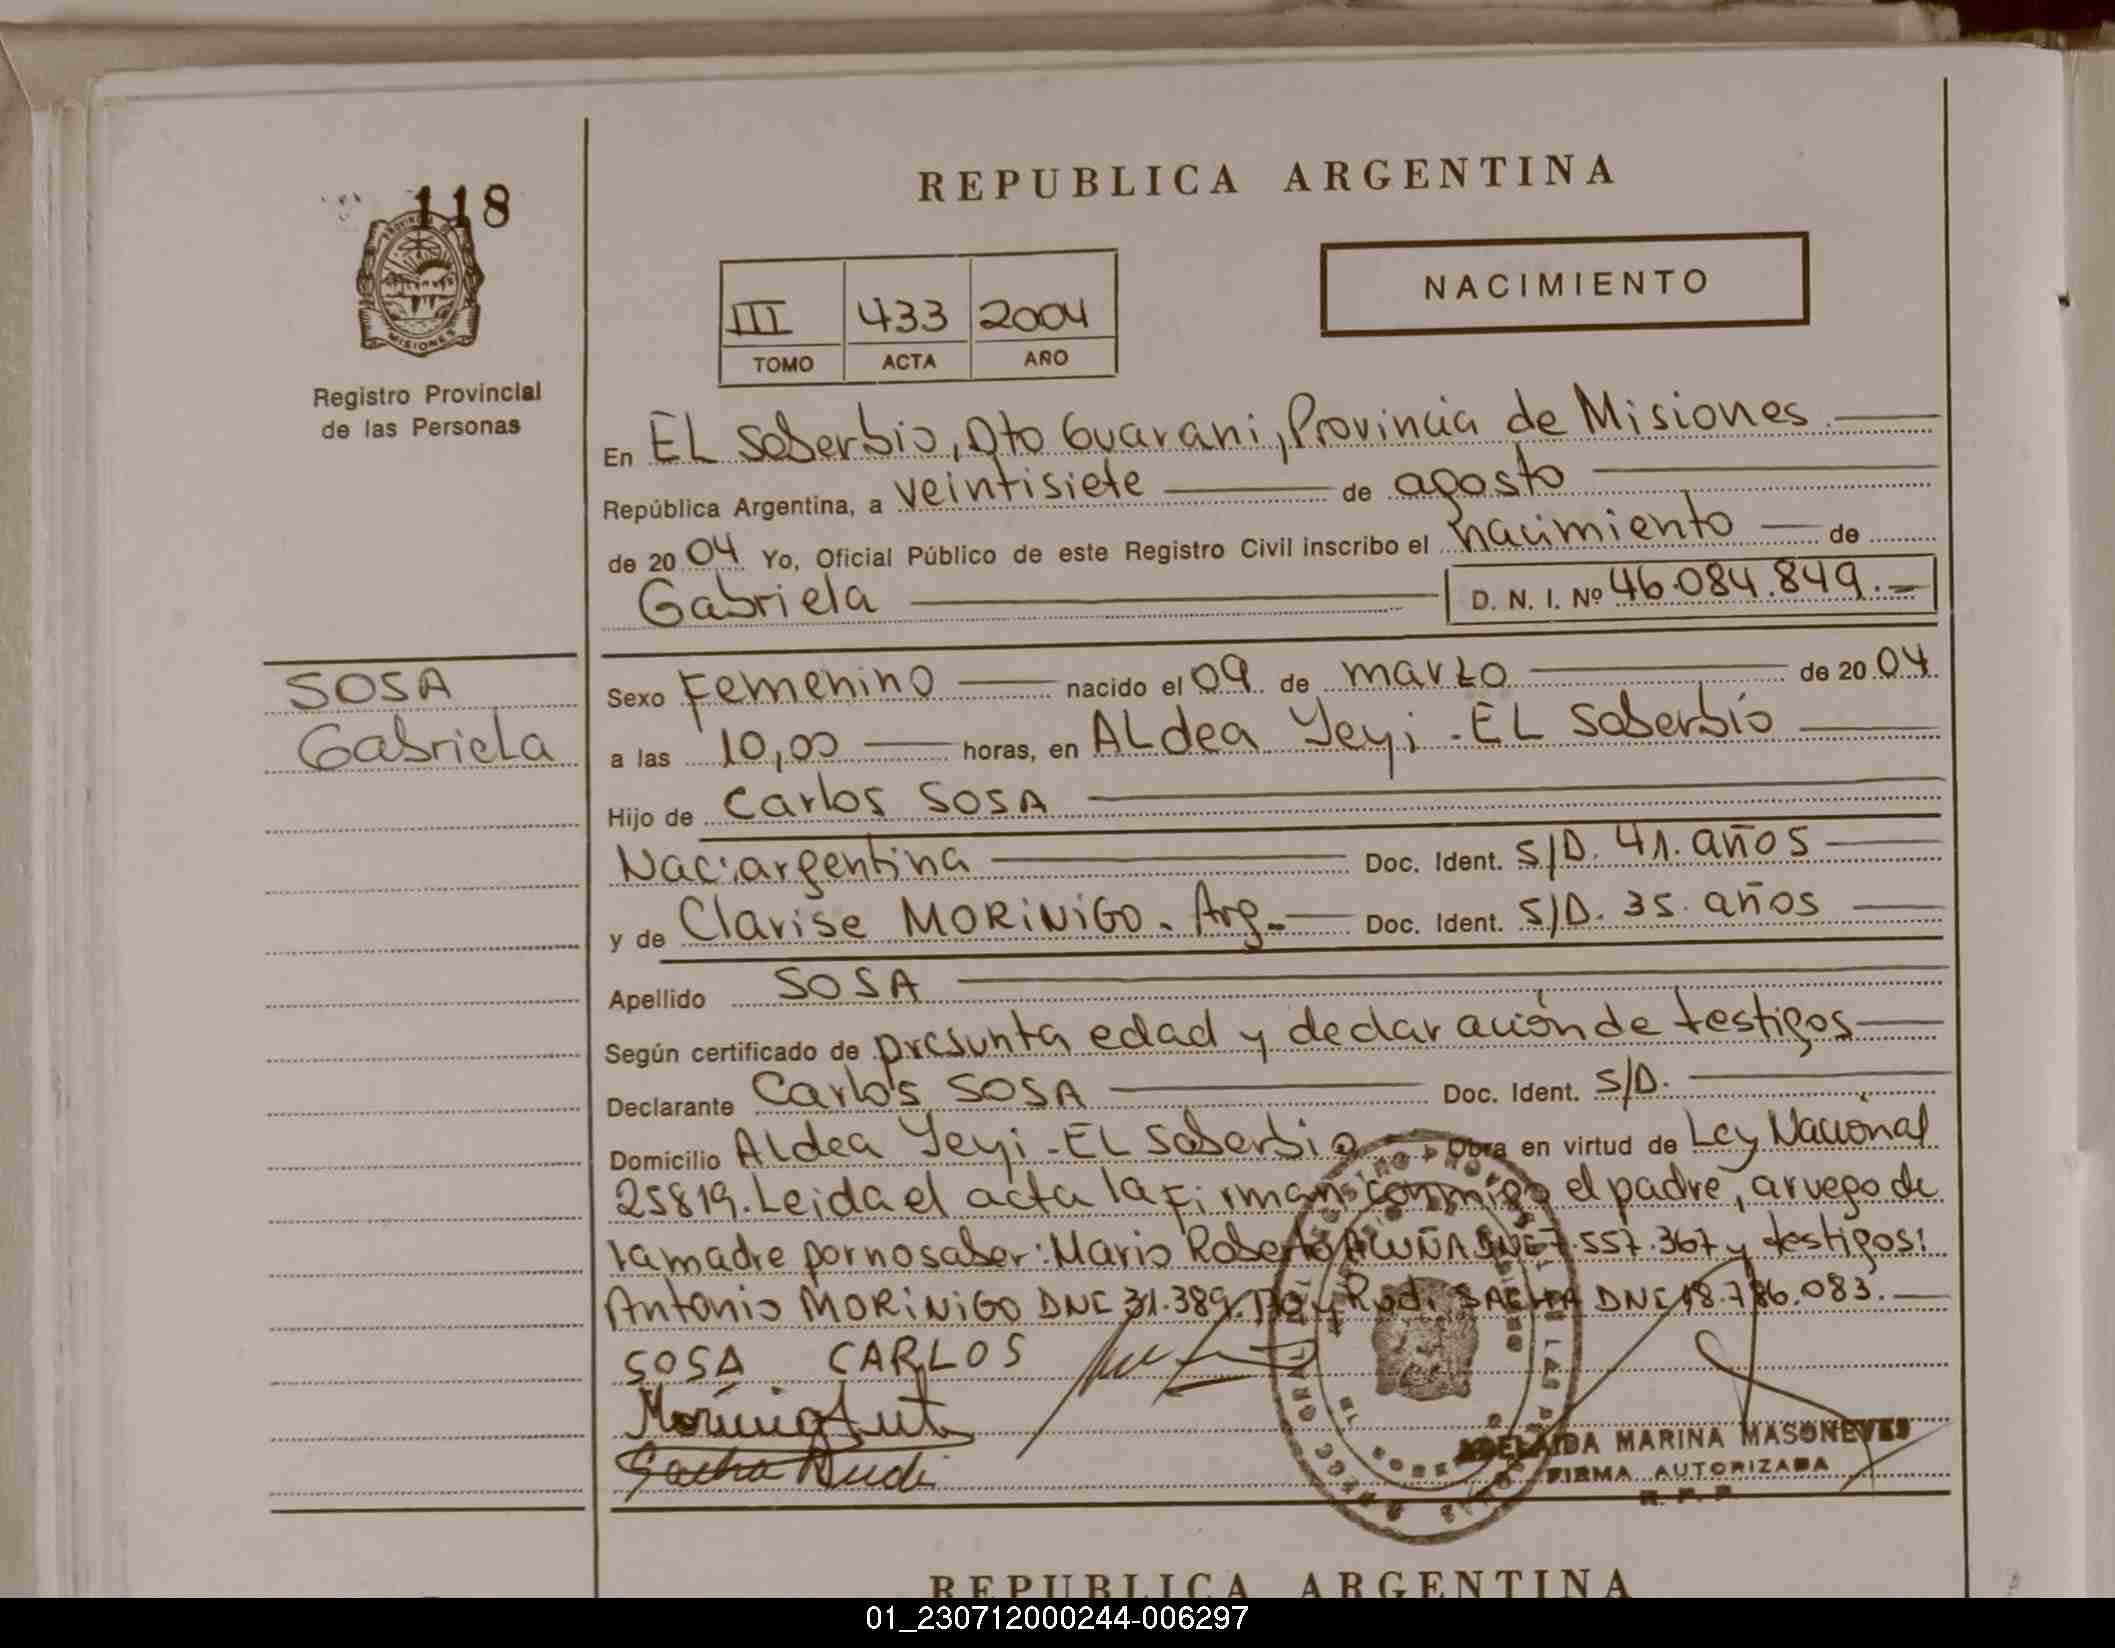 118
REPUBLICA ARGENTINA
NACIMIENTO
III 433 2004
TOMO ACTA AÑO
MISIONES
Registro Provincial
de las Personas
En EL Soberbio, Dto Guarani, Provincia de Misiones
República Argentina, a veintisiete de agosto
de 2004 Yo, Oficial Público de este Registro Civil inscribo el nacimiento de
Gabriela D. N. I. Nº 46.084.849.-
SOSA
Gabriela
Sexo Femenino nacido el 09 de marzo de 2004
a las 10,00 horas, en ALdea Yeyi - EL Soberbio
Hijo de Carlos SOSA
Nac: argentina Doc. Ident. S/D. 41. años
y de Clarise MORiNiGO. Arg.- Doc. Ident. S/D. 35. años
Apellido SOSA
Según certificado de presunta edad y declaración de testigos
Declarante Carlos SOSA Doc. Ident. S/D.
Domicilio ALdea Yeyi - EL Soberbio Obra en virtud de Ley Nacional
25819. Leida el acta la firman conmigo el padre, a ruego de
la madre por no saber: Mario Roberto ACUÑA 7.557.367 y testigos:
Antonio MORiNiGO DNI 31.389. y Rudi SACHA DNI 18.786.083.
SOSA CARLOS
Morinigo Ant
Sacha Rudi
ADELAIDA MARINA MASONEVES
FIRMA AUTORIZADA
R. P. P.
REPUBLICA ARGENTINA
01_230712000244-006297